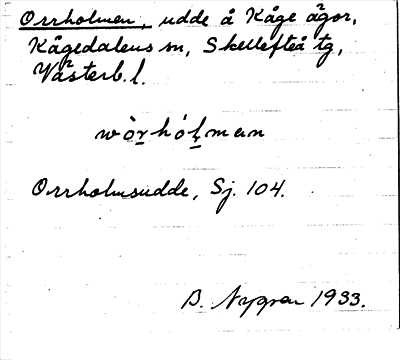 Orrholmen, udde å Kåge ågor,
Kågedalens sn, Skellefteå tg,
Västerb. l.
wòr̠hól̠man
Orrholmsudde, Sj. 104.
B. Nygren 1933.